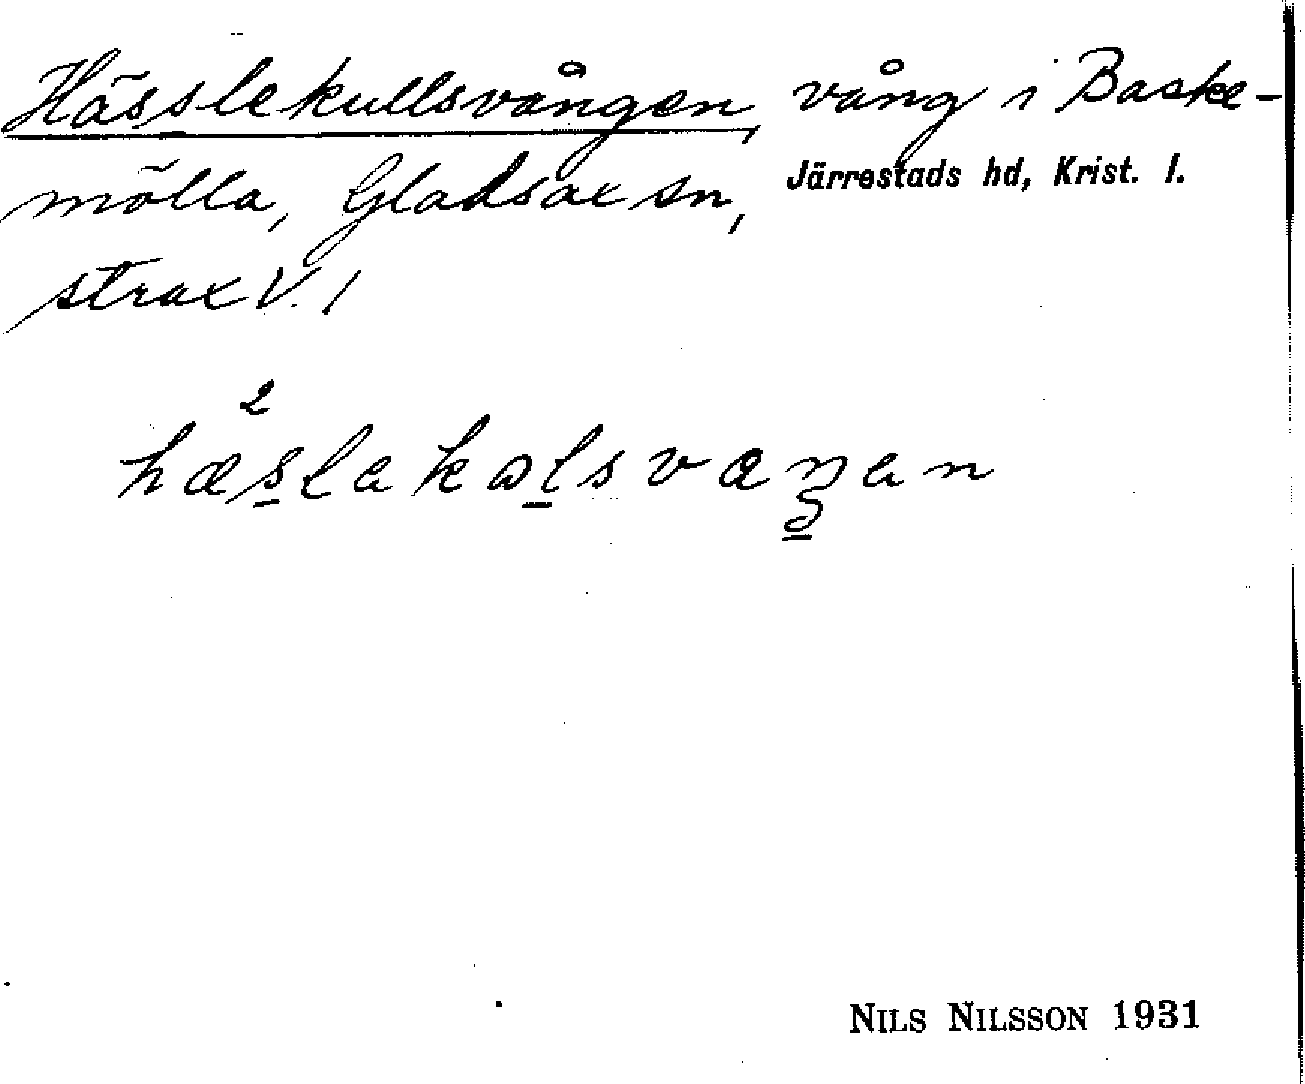 Hässlekullsvången, vång i Baske-
mölla, Gladsax sn, Järrestads hd, Krist. l.
strax V. /
2
hæslakωlsvaŋan
NILS NILSSON 1931